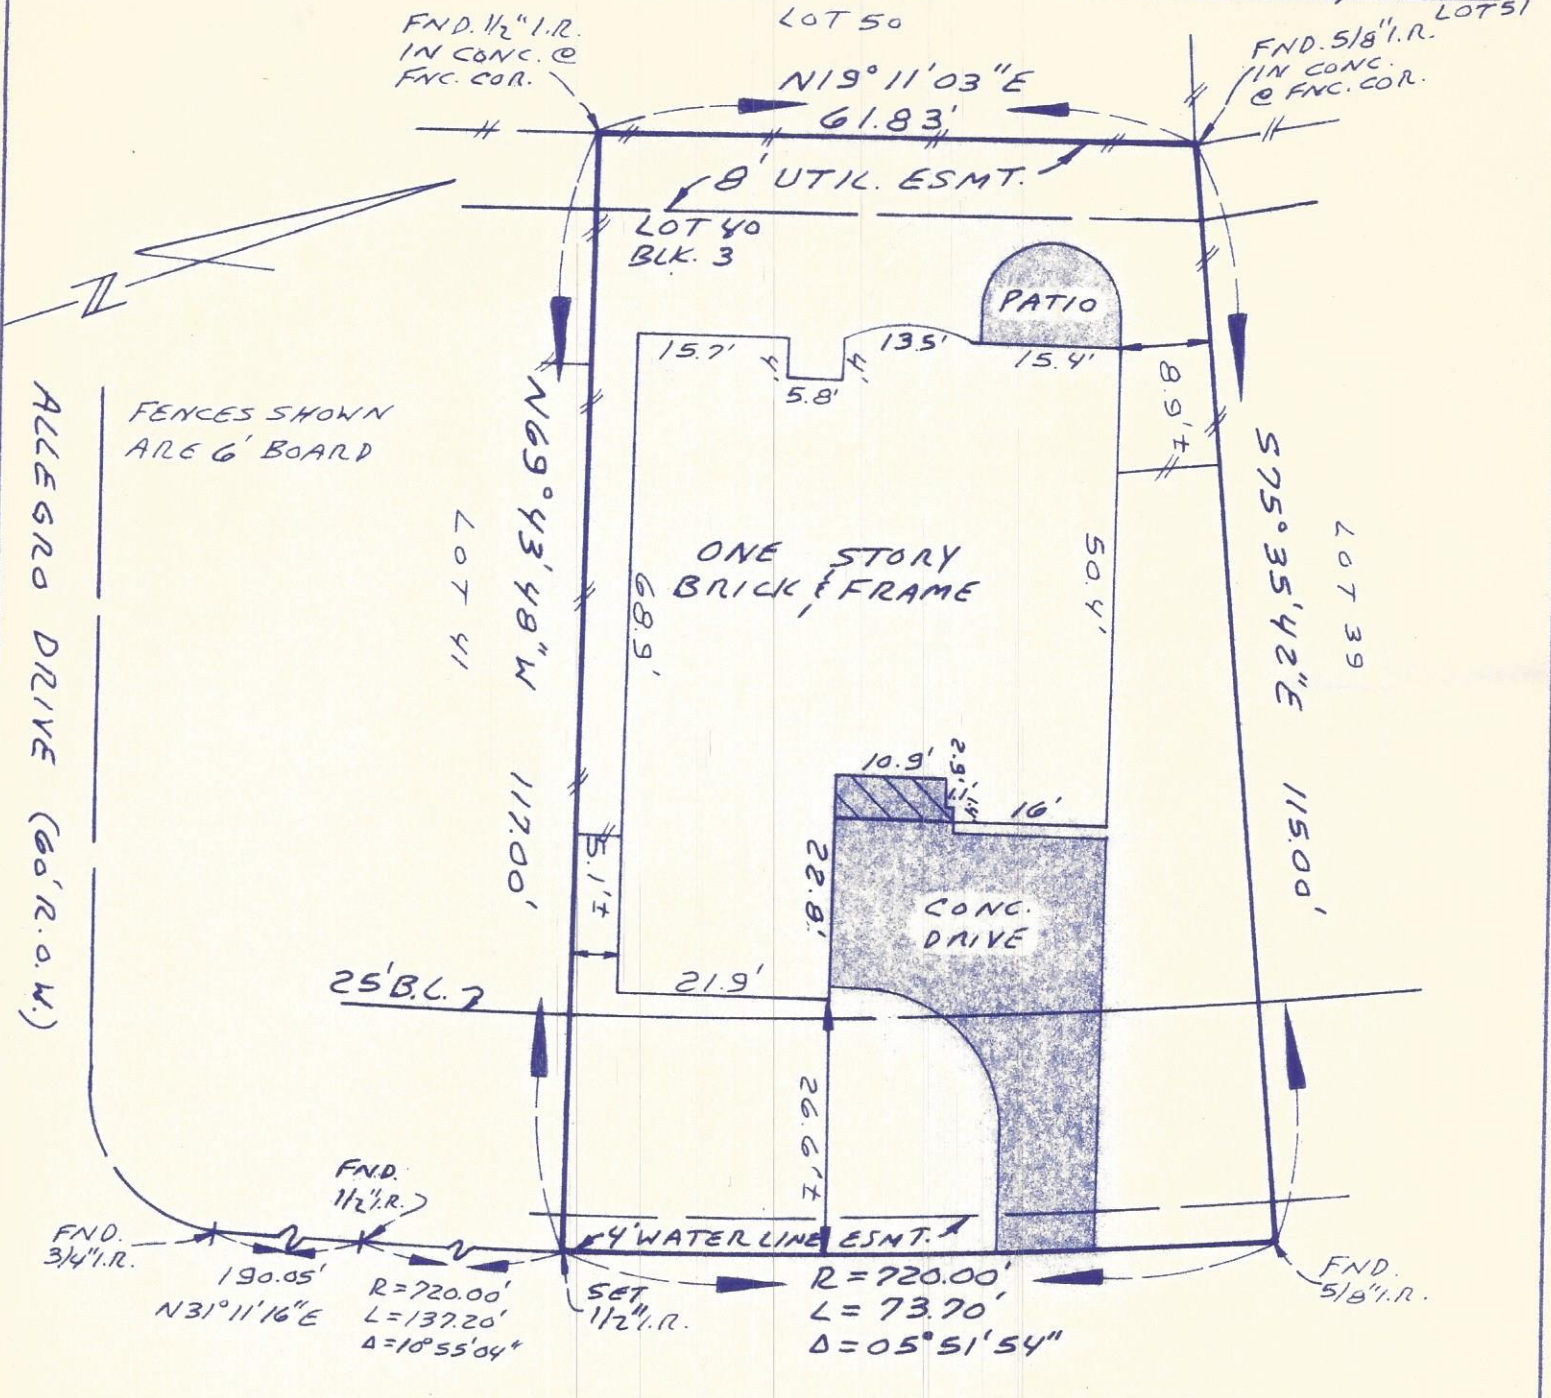 LOT 50
LOT 51
FND. 1/2" I.R.
IN CONC. @
FNC. COR.
FND. 5/8" I.R.
IN CONC.
@ FNC. COR.
N19° 11' 03" E
61.83'
8' UTIL. ESMT.
LOT 40
BLK. 3
PATIO
15.7'
4'
5.8'
4'
13.5'
15.4'
8.9'±
N
FENCES SHOWN
ARE 6' BOARD
ALLEGRO DRIVE (60' R.O.W.)
LOT 41
N69° 43' 48" W 117.00'
68.9'
ONE STORY
BRICK & FRAME
50.4'
S75° 35' 42" E 115.00'
LOT 39
10.9'
2.9'
1.1'
1.4'
16'
5.1'±
22.8'
CONC.
DRIVE
25' B.L.
21.9'
26.6'±
4' WATER LINE ESMT.
FND.
1/2" I.R.
FND.
3/4" I.R.
190.05'
N31° 11' 16" E
R=720.00'
L=137.20'
Δ=10° 55' 04"
SET
1/2" I.R.
R=720.00'
L=73.70'
Δ=05° 51' 54"
FND.
5/8" I.R.